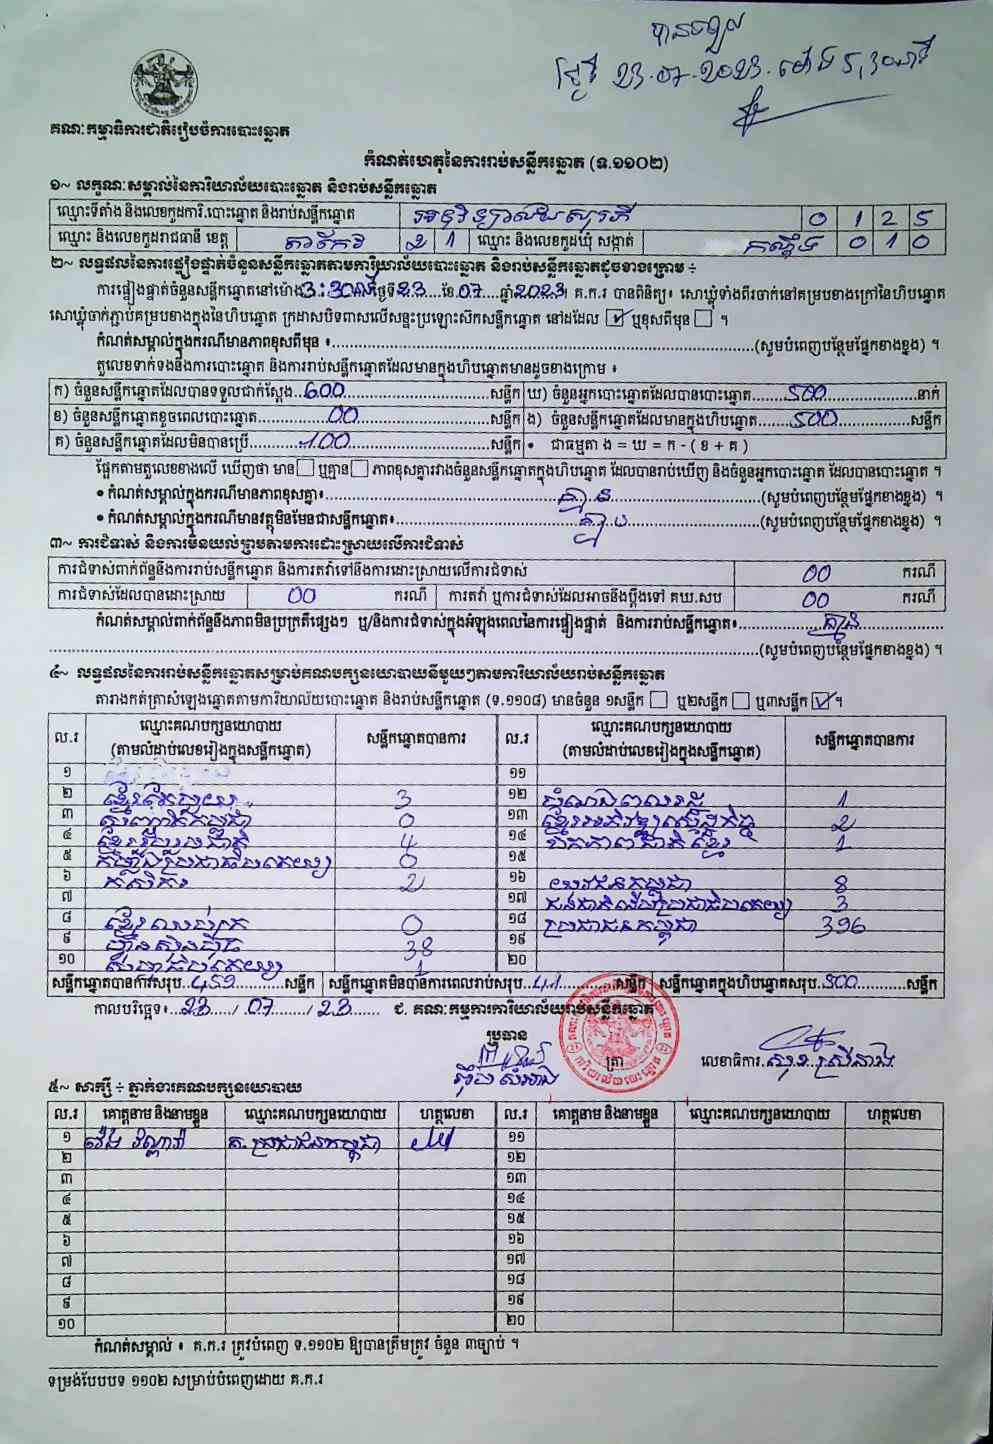 បានទទួល
ថ្ងៃទី 23.07.2023. ម៉ោង 5,30នាទី
គណៈកម្មាធិការជាតិរៀបចំការបោះឆ្នោត
កំណត់ហេតុនៃការរាប់សន្លឹកឆ្នោត (ទ.១១០២)
១~ លក្ខណៈសម្គាល់នៃការិយាល័យបោះឆ្នោត និងរាប់សន្លឹកឆ្នោត
ឈ្មោះទីតាំង និងលេខកូដការិ.បោះឆ្នោត និងរាប់សន្លឹកឆ្នោត 0 1 2 5
ឈ្មោះ និងលេខកូដរាជធានី ខេត្ត តាកែវ 2 1 ឈ្មោះ និងលេខកូដឃុំ សង្កាត់ កណ្ដឹង 0 1 0
២~ លទ្ធផលនៃការផ្ទៀងផ្ទាត់ចំនួនសន្លឹកឆ្នោតតាមការិយាល័យបោះឆ្នោត និងរាប់សន្លឹកឆ្នោតដូចខាងក្រោម ៖
ការផ្ទៀងផ្ទាត់ចំនួនសន្លឹកឆ្នោតនៅម៉ោង 3:30នាទី ថ្ងៃទី 23 ខែ 07 ឆ្នាំ 2023។ គ.ក.រ បានពិនិត្យ៖ សោឃ្លុំទាំងពីរចាក់នៅគម្របខាងក្រៅនៃហិបឆ្នោត
សោឃ្លុំចាក់ភ្ជាប់គម្របខាងក្នុងនៃហិបឆ្នោត ក្រដាសបិទពាសលើសន្ទះប្រឡោះស៊កសន្លឹកឆ្នោត នៅដដែល ☑ ឬខុសពីមុន ☐ ។
កំណត់សម្គាល់ក្នុងករណីមានភាពខុសពីមុន ៖ (សូមបំពេញបន្ថែមផ្នែកខាងខ្នង) ។
តួលេខទាក់ទងនឹងការបោះឆ្នោត និងការរាប់សន្លឹកឆ្នោតដែលមានក្នុងហិបឆ្នោតមានដូចខាងក្រោម ៖
ក) ចំនួនសន្លឹកឆ្នោតដែលបានទទួលជាក់ស្តែង 600 សន្លឹក ឃ) ចំនួនអ្នកបោះឆ្នោតដែលបានបោះឆ្នោត 500 នាក់
ខ) ចំនួនសន្លឹកឆ្នោតខូចពេលបោះឆ្នោត 00 សន្លឹក ង) ចំនួនសន្លឹកឆ្នោតដែលមានក្នុងហិបឆ្នោត 500 សន្លឹក
គ) ចំនួនសន្លឹកឆ្នោតដែលមិនបានប្រើ 100 សន្លឹក • ជាធម្មតា ង = ឃ = ក - ( ខ + គ )
ផ្អែកតាមតួលេខខាងលើ ឃើញថា មាន ☐ ឬគ្មាន ☐ ភាពខុសគ្នារវាងចំនួនសន្លឹកឆ្នោតក្នុងហិបឆ្នោត ដែលបានរាប់ឃើញ និងចំនួនអ្នកបោះឆ្នោត ដែលបានបោះឆ្នោត ។
• កំណត់សម្គាល់ក្នុងករណីមានភាពខុសគ្នា៖ គ្មាន (សូមបំពេញបន្ថែមផ្នែកខាងខ្នង) ។
• កំណត់សម្គាល់ក្នុងករណីមានវត្ថុមិនមែនជាសន្លឹកឆ្នោត៖ គ្មាន (សូមបំពេញបន្ថែមផ្នែកខាងខ្នង) ។
៣~ ការជំទាស់ និងការមិនយល់ព្រមតាមការដោះស្រាយលើការជំទាស់
ការជំទាស់ពាក់ព័ន្ធនឹងការរាប់សន្លឹកឆ្នោត និងការតវ៉ាទៅនឹងការដោះស្រាយលើការជំទាស់ 00 ករណី
ការជំទាស់ដែលបានដោះស្រាយ 00 ករណី ការតវ៉ា ឬការជំទាស់ដែលអាចនឹងប្តឹងទៅ គឃ.សប 00 ករណី
កំណត់សម្គាល់ពាក់ព័ន្ធនឹងភាពមិនប្រក្រតីផ្សេងៗ ឬ/និងការជំទាស់ក្នុងអំឡុងពេលនៃការផ្ទៀងផ្ទាត់ និងការរាប់សន្លឹកឆ្នោត៖ គ្មាន
(សូមបំពេញបន្ថែមផ្នែកខាងខ្នង) ។
៤~ លទ្ធផលនៃការរាប់សន្លឹកឆ្នោតសម្រាប់គណបក្សនយោបាយនីមួយៗតាមការិយាល័យរាប់សន្លឹកឆ្នោត
តារាងកត់ត្រាសំឡេងឆ្នោតតាមការិយាល័យបោះឆ្នោត និងរាប់សន្លឹកឆ្នោត (ទ.១១០៨) មានចំនួន ១សន្លឹក ☐ ឬ២សន្លឹក ☐ ឬ៣សន្លឹក ☑ ។
ល.រ ឈ្មោះគណបក្សនយោបាយ (តាមលំដាប់លេខរៀងក្នុងសន្លឹកឆ្នោត) សន្លឹកឆ្នោតបានការ ល.រ ឈ្មោះគណបក្សនយោបាយ (តាមលំដាប់លេខរៀងក្នុងសន្លឹកឆ្នោត) សន្លឹកឆ្នោតបានការ
១ ១១
២ 3 ១២ 1
៣ 0 ១៣ ខ្មែរអភិវឌ្ឍន៍សេដ្ឋកិច្ច 2
៤ ខ្មែររួបរួមជាតិ 4 ១៤ ឯកភាពជាតិខ្មែរ 1
៥ កម្លាំងប្រជាធិបតេយ្យ 0 ១៥
៦ កសិករ 2 ១៦ យុវជនកម្ពុជា 8
៧ ១៧ 3
៨ ខ្មែរឈប់ក្រ 0 ១៨ ប្រជាជនកម្ពុជា 396
៩ ហ្វ៊ុនស៊ិនប៉ិច 38 ១៩
១០ 1 ២០
សន្លឹកឆ្នោតបានការសរុប 459 សន្លឹក សន្លឹកឆ្នោតមិនបានការពេលរាប់សរុប 41 សន្លឹក សន្លឹកឆ្នោតក្នុងហិបឆ្នោតសរុប 500 សន្លឹក
កាលបរិច្ឆេទ៖ 23 / 07 / 23 ជ. គណៈកម្មការការិយាល័យរាប់សន្លឹកឆ្នោត
ប្រធាន ត្រា លេខាធិការ
៥~ សាក្សី ៖ ភ្នាក់ងារគណបក្សនយោបាយ
ល.រ គោត្តនាម និងនាមខ្លួន ឈ្មោះគណបក្សនយោបាយ ហត្ថលេខា ល.រ គោត្តនាម និងនាមខ្លួន ឈ្មោះគណបក្សនយោបាយ ហត្ថលេខា
១ គ.ប្រជាជនកម្ពុជា ១១
២ ១២
៣ ១៣
៤ ១៤
៥ ១៥
៦ ១៦
៧ ១៧
៨ ១៨
៩ ១៩
១០ ២០
កំណត់សម្គាល់ ៖ គ.ក.រ ត្រូវបំពេញ ទ.១១០២ ឱ្យបានត្រឹមត្រូវ ចំនួន ៣ច្បាប់ ។
ទម្រង់បែបបទ ១១០២ សម្រាប់បំពេញដោយ គ.ក.រ